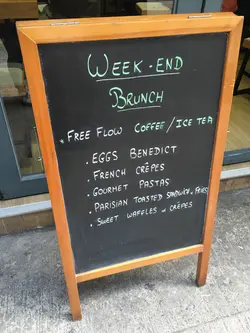 WEEK-END
BRUNCH
. FREE FLOW COFFEE/ICE TEA
. EGGS BENEDICT
. FRENCH CRÊPES
. GOURMET PASTAS
. PARISIAN TOASTED SANDWICH, FRIES
. SWEET WAFFLES & CRÊPES